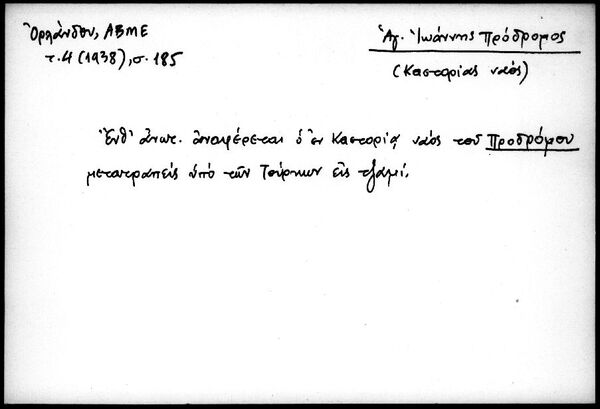 Ὀρλάνδου, ΑΒΜΕ
τ.4 (1938), σ. 185
Ἁγ. Ἰωάννης Πρόδρομος
(Καστοριάς ναός)
Ἐνθ' ἀνωτ. ἀναφέρεται ὁ ἐν Καστορίᾳ ναός τοῦ Προδρόμου
μετατραπείς ὑπό τῶν Τούρκων εἰς τζαμί.